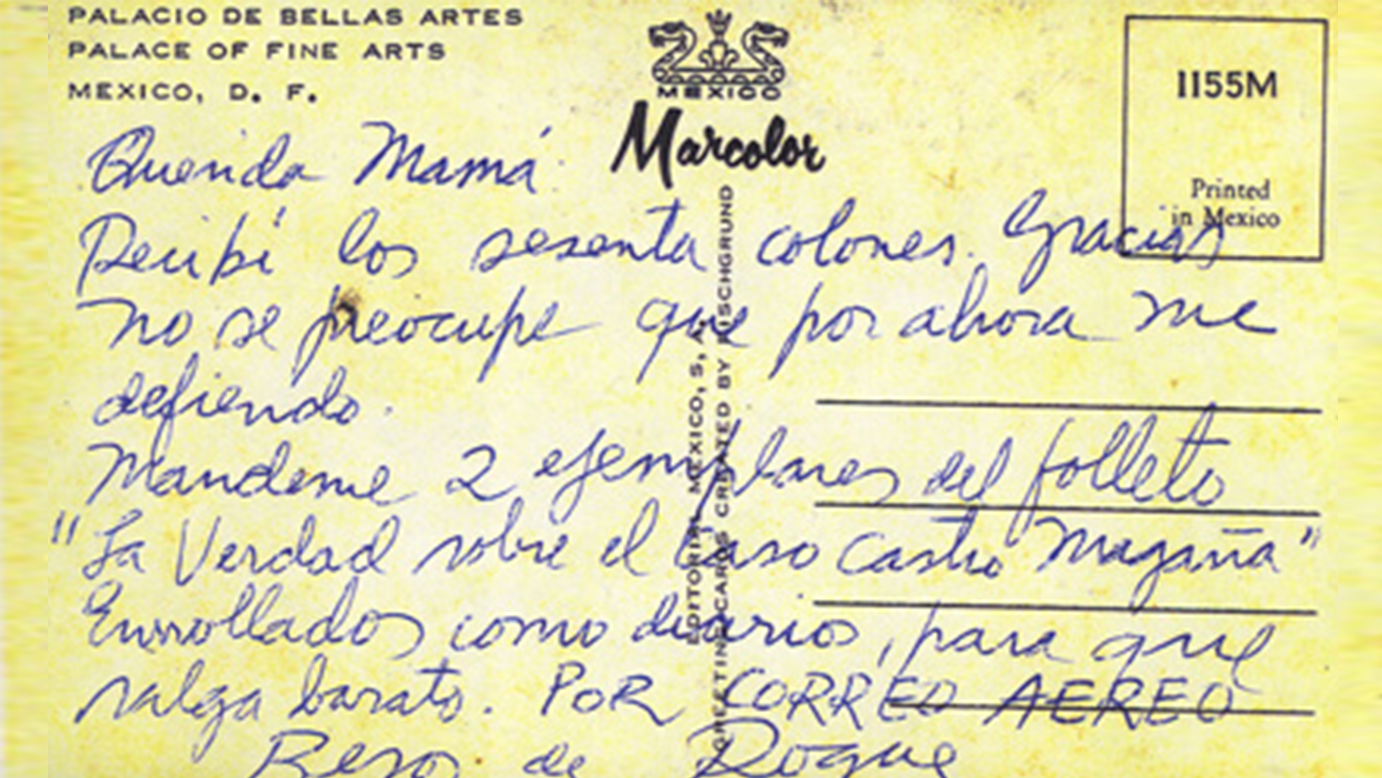 PALACIO DE BELLAS ARTES
PALACE OF FINE ARTS
MEXICO, D. F.
MEXICO
Marcolor
1155M
Printed
in Mexico
Querida Mamá
Recibí los sesenta colones. Gracias
no se preocupe que por ahora me
defiendo.
Mandeme 2 ejemplares del folleto
"La Verdad sobre el Caso Castro Magaña"
Enrollados como diarios, para que
salga barato. POR CORREO AEREO
Beso de Roque
EDITORIAL MEXICO, S. A.
GREETING CARDS CREATED BY FISCHGRUND